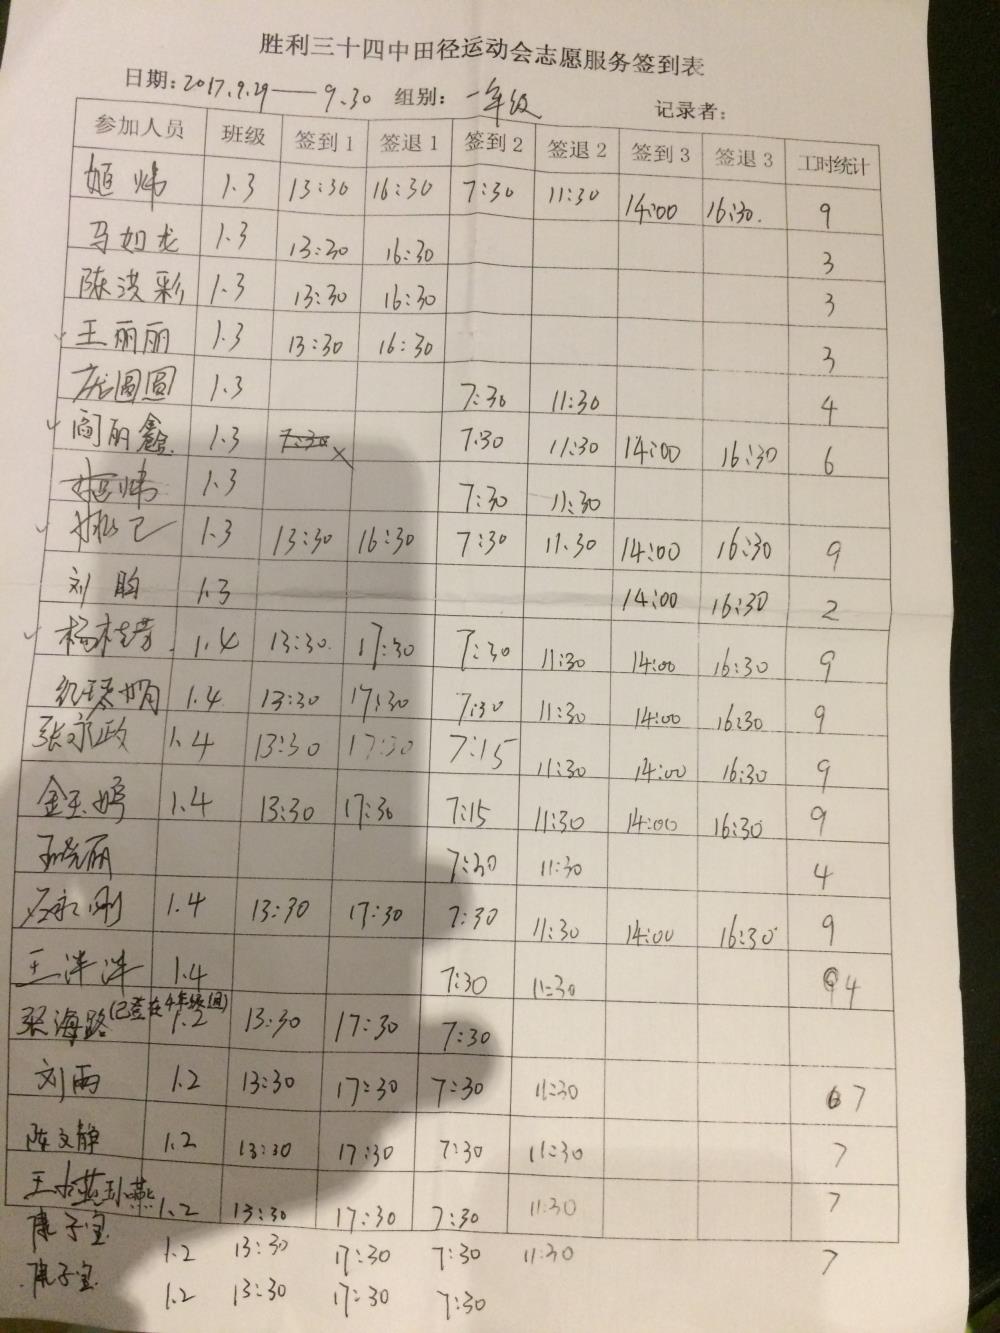 胜利三十四中田径运动会志愿服务签到表
日期：2017.9.29——9.30 组别：一年级 记录者：
参加人员 班级 签到1 签退1 签到2 签退2 签到3 签退3 工时统计
姬炜 1.3 13:30 16:30 7:30 11:30 14:00 16:30. 9
马如龙 1.3 13:30 16:30 3
陈洪彩 1.3 13:30 16:30 3
王丽丽 1.3 13:30 16:30 3
庞圆圆 1.3 7:30 11:30 4
阎丽鑫 1.3 7:30 7:30 11:30 14:00 16:30 6
1.3 7:30 11:30
1.3 13:30 16:30 7:30 11.30 14:00 16:30 9
刘昀 1.3 14:00 16:30 2
杨桂芳 1.4 13:30 17:30 7:30 11:30 14:00 16:30 9
纪琴娟 1.4 13:30 17:30 7:30 11:30 14:00 16:30 9
张永政 1.4 13:30 17:30 7:15 11:30 14:00 16:30 9
金玉婷 1.4 13:30 17:30 7:15 11:30 14:00 16:30 9
孙晓丽 7:30 11:30 4
石永刚 1.4 13:30 17:30 7:30 11:30 14:00 16:30 9
王洋洋 1.4 7:30 11:30 4
梁海路(已签在4年级组) 1.2 13:30 17:30 7:30
刘雨 1.2 13:30 17:30 7:30 11:30 7
陈文静 1.2 13:30 17:30 7:30 11:30 7
王小燕 孙燕 1.2 13:30 17:30 7:30 11:30 7
康子宝 1.2 13:30 17:30 7:30 11:30 7
康子宝 1.2 13:30 17:30 7:30